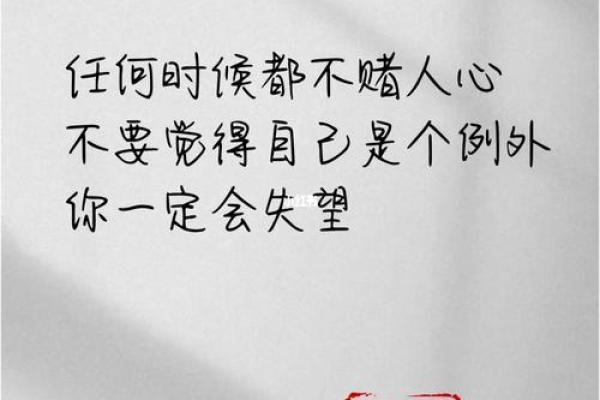 任何时候都不赌人心
不要觉得自己是个例外
你一定会失望
小红书